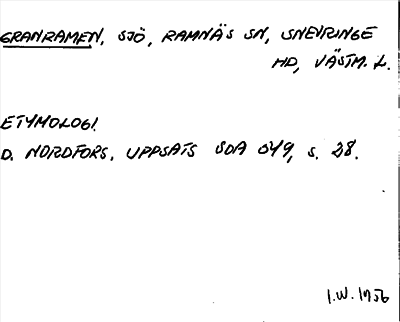 GRANRAMEN, SJÖ, RAMNÄS SN, SNEVRINGE
HD, VÄSTM. L.
ETYMOLOGI
D. NORDFORS, UPPSATS SOA 049, S. 28.
I.W. 1956